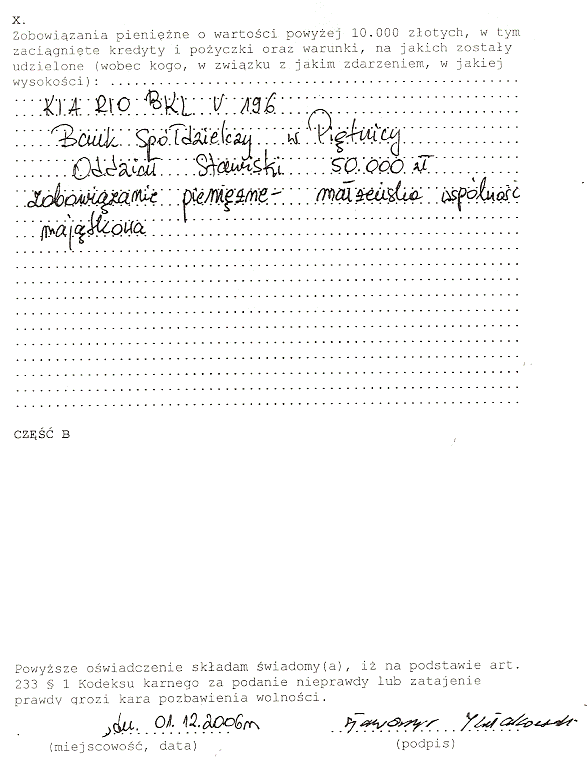 X.
Zobowiązania pieniężne o wartości powyżej 10.000 złotych, w tym
zaciągnięte kredyty i pożyczki oraz warunki, na jakich zostały
udzielone (wobec kogo, w związku z jakim zdarzeniem, w jakiej
wysokości):
KIA RIO BKL V 196
Bank Spółdzielczy w Piątnicy
Oddział Stawiski 50.000 zł
zobowiązanie pieniężne - małżeńska wspólność
majątkowa
CZĘŚĆ B
Powyższe oświadczenie składam świadomy(a), iż na podstawie art.
233 § 1 Kodeksu karnego za podanie nieprawdy lub zatajenie
prawdy grozi kara pozbawienia wolności.
dn. 01.12.2006r
(miejscowość, data) (podpis)